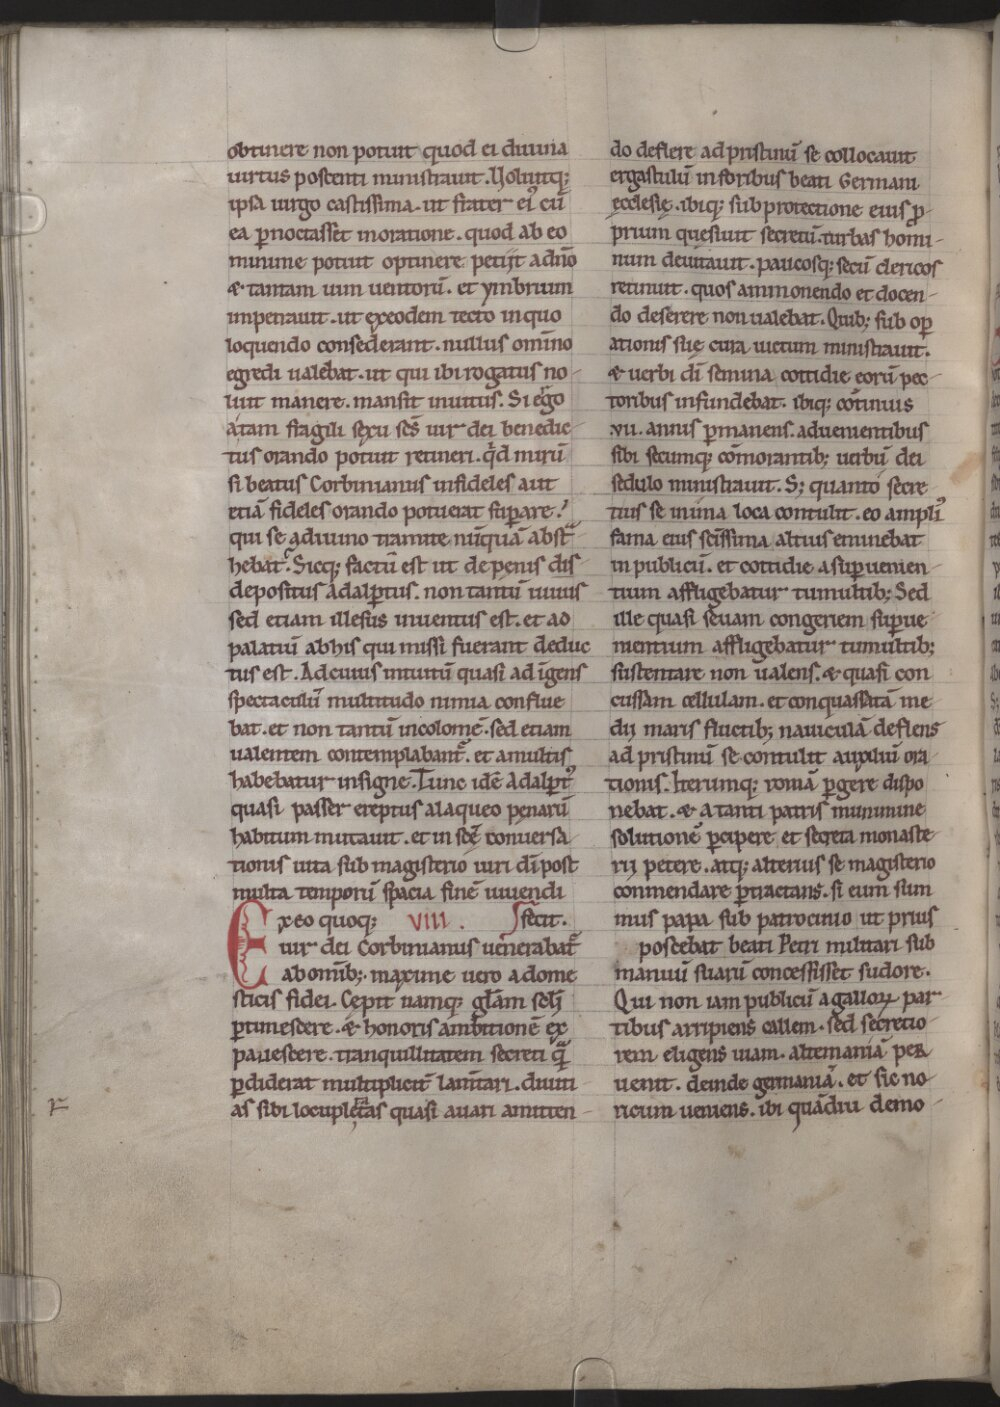 obtinere non potuit quod ei diuina
uirtus poscenti ministrauit. Noluitq;
ipsa uirgo castissima. ut frater ei᾽ cū
ea p̄noctasset in oratione. quod ab eo
minime potuit optinere petijt a dn̄o
& tantam uim uentorū. et ymbrium
impetrauit. ut ex eodem tecto in quo
loquendo consederant. nullus om̄ino
egredi ualebat. ut qui ibi rogatus no-
luit manere. mansit inuitus. Si ergo
a tam fragili sexu sc̄s uir dei benedic-
tus orando potuit retineri. qd mirū
si beatus Corbinianus infideles aut
etiā fideles orando potuerat sup̄are?
qui se a diuino tramite nūquā abst
hebat᾽. Sicq; factū est ut de penis dis-
depositus Adalp̄tus. non tantū uiuus
sed etiam illesus inuentus est. et ad
palatiū ab his qui missi fuerant deduc
tus est. Ad cuius intuitū quasi ad īgens
spectaculū multitudo nimia conflue
bat. et non tantū incolomē. sed etiam
ualentem contemplabant᾽. et a multis
habebatur insigne. Tunc idē Adalp̄t᾽
quasi passer ereptus a laqueo penarū
habitum mutauit. et in sc̄ę conuersa-
tionis uita sub magisterio uiri dī post
multa temporū spacia finē uiuendi
fecit.
VIII.
Ex eo quoq;
uir dei Corbinianus uenerabat᾽
ab omīb;. maxime uero a dome
sticis fidei. Cepit namq; gl̄am sc̄lj
p̄timescere. & honoris ambitionē ex
pauescere. tranquillitatem secreti q
p̄diderat multiplicit᾽ lam̄tari. diuiti-
as sibi locupletatas quasi auari amitten-
do deflere ad pristinū se collocauit
ergastulū in foribus beati Germani
ęcclesię. ibiq; sub protectione eius p̄o-
prium quesiuit secretū. turbas homi-
num deuitauit. paucosq; secū clericos
retinuit. quos ammonendo et docen-
do deserere non ualebat. Quib; sub op̄
ationis suę cura uictum ministrauit.
& uerbi dī semina cottidie eorū pec-
toribus infundebat. ibiq; cōtinuis
.vii. annis p̄manens. aduenientibus
sibi secumq; cōmorantib; uerbū dei
sedulo ministrauit. S; quanto secre
tius se in ima loca contulit. eo ampli᾽
fama eius sc̄issima altius eminebat
in publicū. et cottidie a sup̄uenien-
tium affligebatur tumultib; Sed
ille quasi seuam congeriem sup̄ue-
nientium affligebatur tumultib;
sustentare non ualens. & quasi con
cussam cellulam. et conquassatā me-
dij maris fluctib; nauiculā deflens
ad pristinū se contulit auxiliū ora
tionis. Iterumq; romā p̄gere dispo
nebat. & a tanti patris munimine
solutionē p̄cipere et secreta monaste-
rij petere. atq; alterius se magisterio
conmendare p̄tractans. si eum sum
mus papa sub patrocinio ut prius
poscebat beati Petri militari sub
manuū suarū concessisset sudore.
Qui non iam publicū a galloꝝ par-
tibus arripiens callem. sed secretio-
rem eligens uiam. altemaniā per
uenit. deinde germaniā. et sic no-
ricum ueniens. ibi quādiu demo-